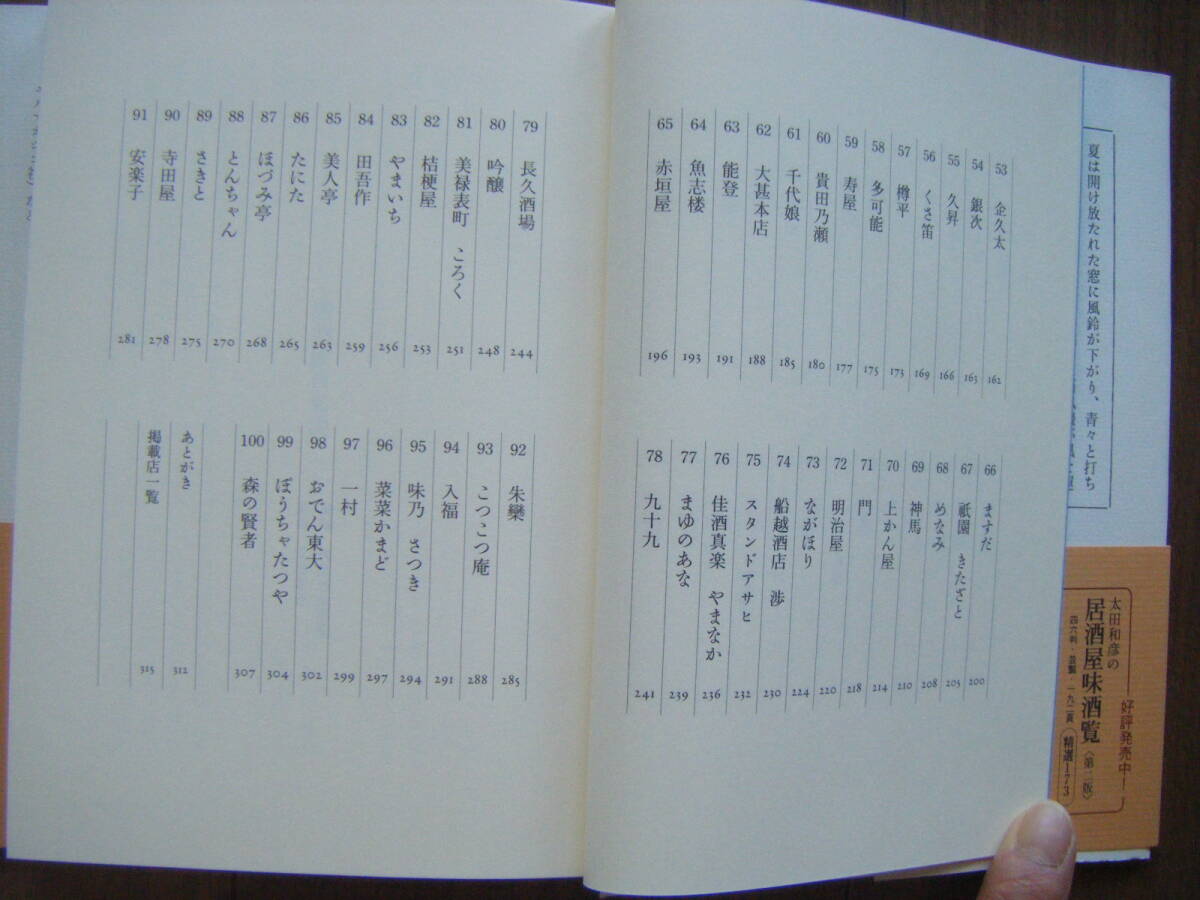 53 企久太 162
54 銀次 163
55 久昇 166
56 くさ笛 169
57 樽平 173
58 多可能 175
59 寿屋 177
60 貴田乃瀬 180
61 千代娘 185
62 大甚本店 188
63 能登 191
64 魚志楼 193
65 赤垣屋 196
66 ますだ 200
67 祇園 きたざと 205
68 めなみ 208
69 神馬 210
70 上かん屋 214
71 門 218
72 明治屋 220
73 ながほり 224
74 船越酒店 渉 230
75 スタンドアサヒ 232
76 佳酒真楽 やまなか 236
77 まゆのあな 239
78 九十九 241
79 長久酒場 244
80 吟醸 248
81 美禄表町 ころく 251
82 桔梗屋 253
83 やまいち 256
84 田吾作 259
85 美人亭 263
86 たにた 265
87 ほづみ亭 268
88 とんちゃん 270
89 さきと 275
90 寺田屋 278
91 安楽子 281
92 朱欒 285
93 こつこつ庵 288
94 入福 291
95 味乃 さつき 294
96 菜菜かまど 297
97 一村 299
98 おでん東大 302
99 ぼうちゃたつや 304
100 森の賢者 307
あとがき 312
掲載店一覧 315
夏は開け放たれた窓に風鈴が下がり、青々と打ち
好評発売中!
太田和彦の
居酒屋味酒覧〈第二版〉
精選173
四六判・並製・一九二頁